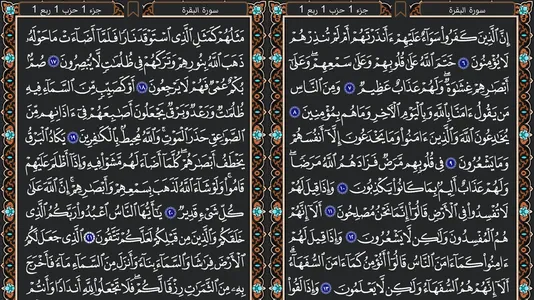 سورة البقرة
جزء 1 حزب 1 ربع 1
إِنَّ ٱلَّذِينَ كَفَرُوا۟ سَوَآءٌ عَلَيْهِمْ ءَأَنذَرْتَهُمْ أَمْ لَمْ تُنذِرْهُمْ
لَا يُؤْمِنُونَ ٦ خَتَمَ ٱللَّهُ عَلَىٰ قُلُوبِهِمْ وَعَلَىٰ سَمْعِهِمْ ۖ وَعَلَىٰٓ
أَبْصَـٰرِهِمْ غِشَـٰوَةٌ ۖ وَلَهُمْ عَذَابٌ عَظِيمٌ ٧ وَمِنَ ٱلنَّاسِ
مَن يَقُولُ ءَامَنَّا بِٱللَّهِ وَبِٱلْيَوْمِ ٱلْـَٔاخِرِ وَمَا هُم بِمُؤْمِنِينَ ٨
يُخَـٰدِعُونَ ٱللَّهَ وَٱلَّذِينَ ءَامَنُوا۟ وَمَا يَخْدَعُونَ إِلَّآ أَنفُسَهُمْ
وَمَا يَشْعُرُونَ ٩ فِى قُلُوبِهِم مَّرَضٌ فَزَادَهُمُ ٱللَّهُ مَرَضًا ۖ
وَلَهُمْ عَذَابٌ أَلِيمٌۢ بِمَا كَانُوا۟ يَكْذِبُونَ ١٠ وَإِذَا قِيلَ لَهُمْ
لَا تُفْسِدُوا۟ فِى ٱلْأَرْضِ قَالُوٓا۟ إِنَّمَا نَحْنُ مُصْلِحُونَ ١١ أَلَآ إِنَّهُمْ
هُمُ ٱلْمُفْسِدُونَ وَلَـٰكِن لَّا يَشْعُرُونَ ١٢ وَإِذَا قِيلَ لَهُمْ
ءَامِنُوا۟ كَمَآ ءَامَنَ ٱلنَّاسُ قَالُوٓا۟ أَنُؤْمِنُ كَمَآ ءَامَنَ ٱلسُّفَهَآءُ ۗ
أَلَآ إِنَّهُمْ هُمُ ٱلسُّفَهَآءُ وَلَـٰكِن لَّا يَعْلَمُونَ ١٣ وَإِذَا لَقُوا۟
سورة البقرة
جزء 1 حزب 1 ربع 1
مَثَلُهُمْ كَمَثَلِ ٱلَّذِى ٱسْتَوْقَدَ نَارًا فَلَمَّآ أَضَآءَتْ مَا حَوْلَهُۥ
ذَهَبَ ٱللَّهُ بِنُورِهِمْ وَتَرَكَهُمْ فِى ظُلُمَـٰتٍ لَّا يُبْصِرُونَ ١٧ صُمٌّۢ
بُكْمٌ عُمْىٌ فَهُمْ لَا يَرْجِعُونَ ١٨ أَوْ كَصَيِّبٍ مِّنَ ٱلسَّمَآءِ فِيهِ
ظُلُمَـٰتٌ وَرَعْدٌ وَبَرْقٌ يَجْعَلُونَ أَصَـٰبِعَهُمْ فِىٓ ءَاذَانِهِم مِّنَ
ٱلصَّوَٰعِقِ حَذَرَ ٱلْمَوْتِ ۚ وَٱللَّهُ مُحِيطٌۢ بِٱلْكَـٰفِرِينَ ١٩ يَكَادُ ٱلْبَرْقُ
يَخْطَفُ أَبْصَـٰرَهُمْ ۖ كُلَّمَآ أَضَآءَ لَهُم مَّشَوْا۟ فِيهِ وَإِذَآ أَظْلَمَ عَلَيْهِمْ
قَامُوا۟ ۚ وَلَوْ شَآءَ ٱللَّهُ لَذَهَبَ بِسَمْعِهِمْ وَأَبْصَـٰرِهِمْ ۚ إِنَّ ٱللَّهَ عَلَىٰ
كُلِّ شَىْءٍ قَدِيرٌ ٢٠ يَـٰٓأَيُّهَا ٱلنَّاسُ ٱعْبُدُوا۟ رَبَّكُمُ ٱلَّذِى
خَلَقَكُمْ وَٱلَّذِينَ مِن قَبْلِكُمْ لَعَلَّكُمْ تَتَّقُونَ ٢١ ٱلَّذِى جَعَلَ لَكُمُ
ٱلْأَرْضَ فِرَٰشًا وَٱلسَّمَآءَ بِنَآءً وَأَنزَلَ مِنَ ٱلسَّمَآءِ مَآءً فَأَخْرَجَ
بِهِۦ مِنَ ٱلثَّمَرَٰتِ رِزْقًا لَّكُمْ ۖ فَلَا تَجْعَلُوا۟ لِلَّهِ أَندَادًا وَأَنتُمْ